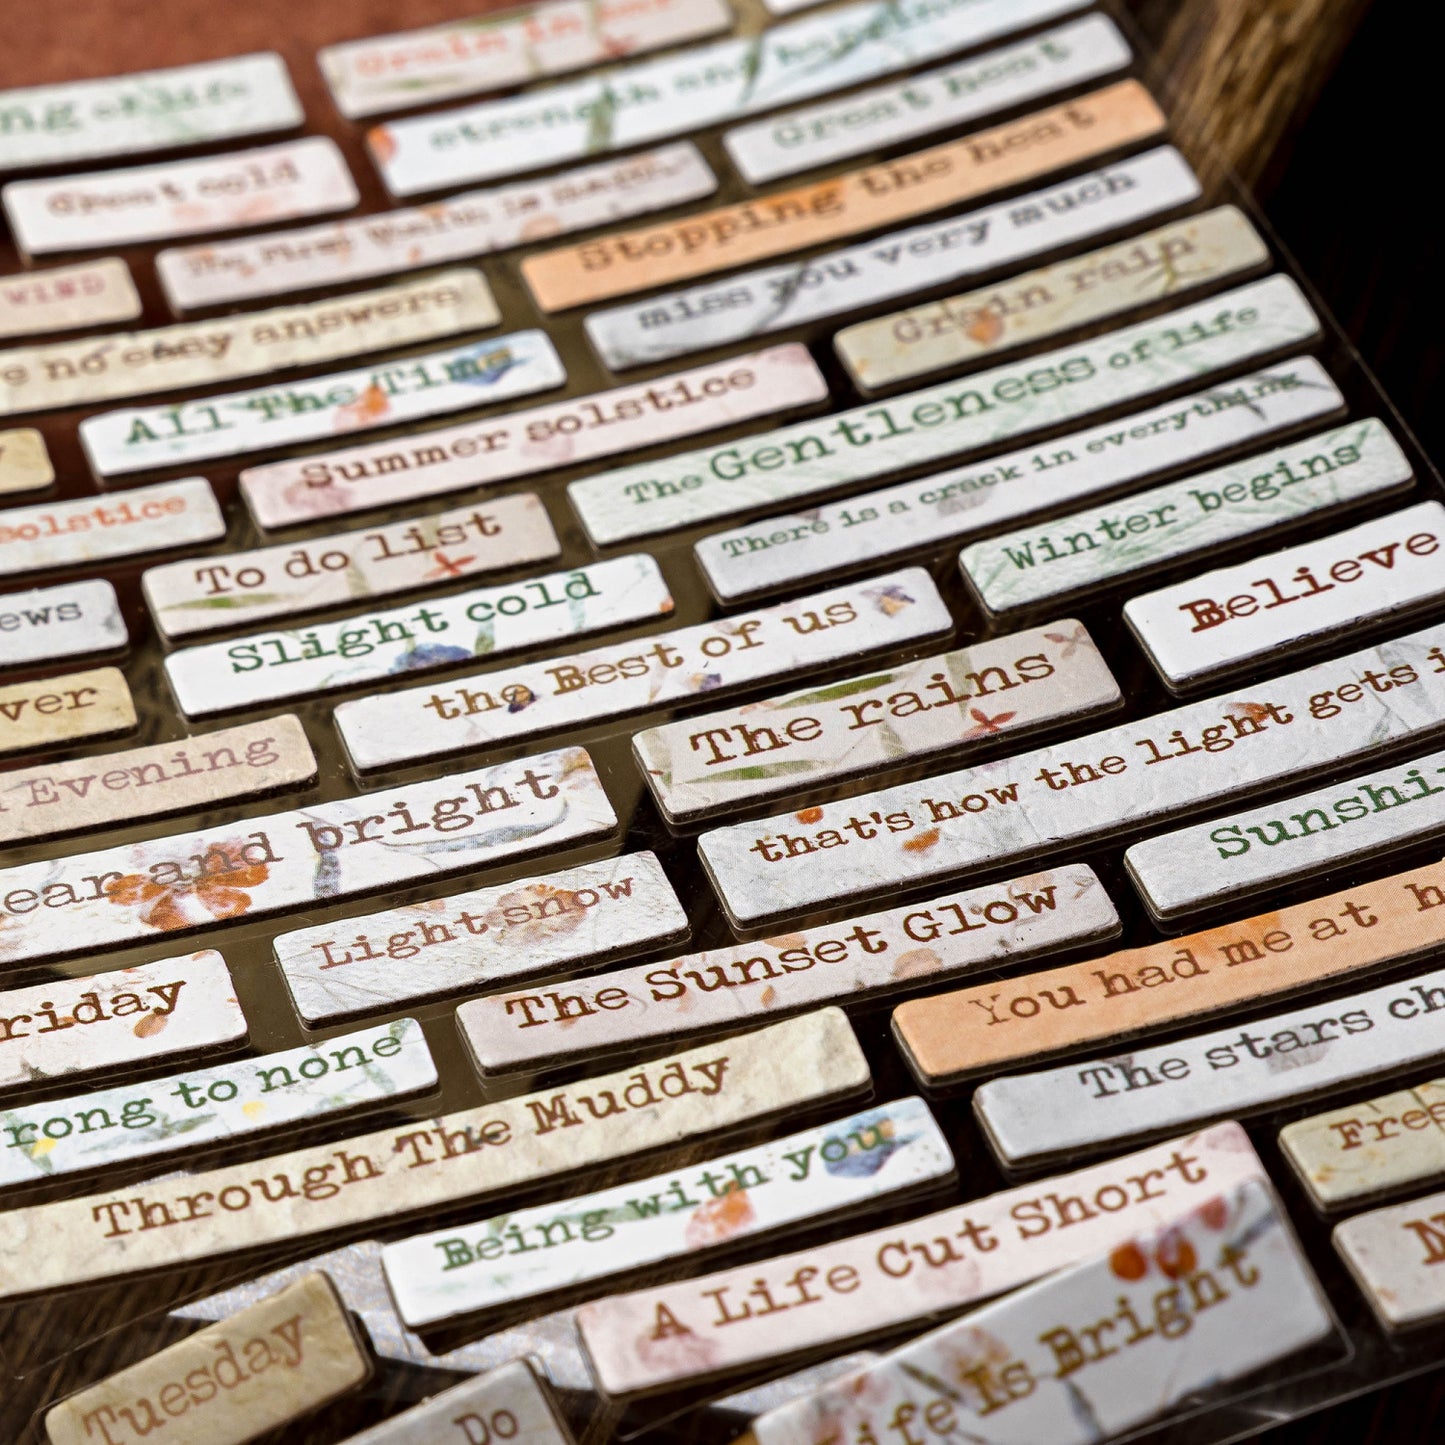 Grain in ear
ng of life
strength and happiness
Great heat
Great cold
Stopping the heat
is
miss you very much
WIND
Grain rain
no easy answers
The Gentleness of life
All The Time
Summer solstice
There is a crack in everything
Winter begins
solstice
To do list
Believe
ews
Slight cold
the Best of us
The rains
ver
that's how the light gets i
Evening
Sunshi
ear and bright
Light snow
The Sunset Glow
You had me at h
riday
The stars ch
rong to none
Through The Muddy
Free
Being with you
A Life Cut Short
N
Life Is Bright
Tuesday
Do